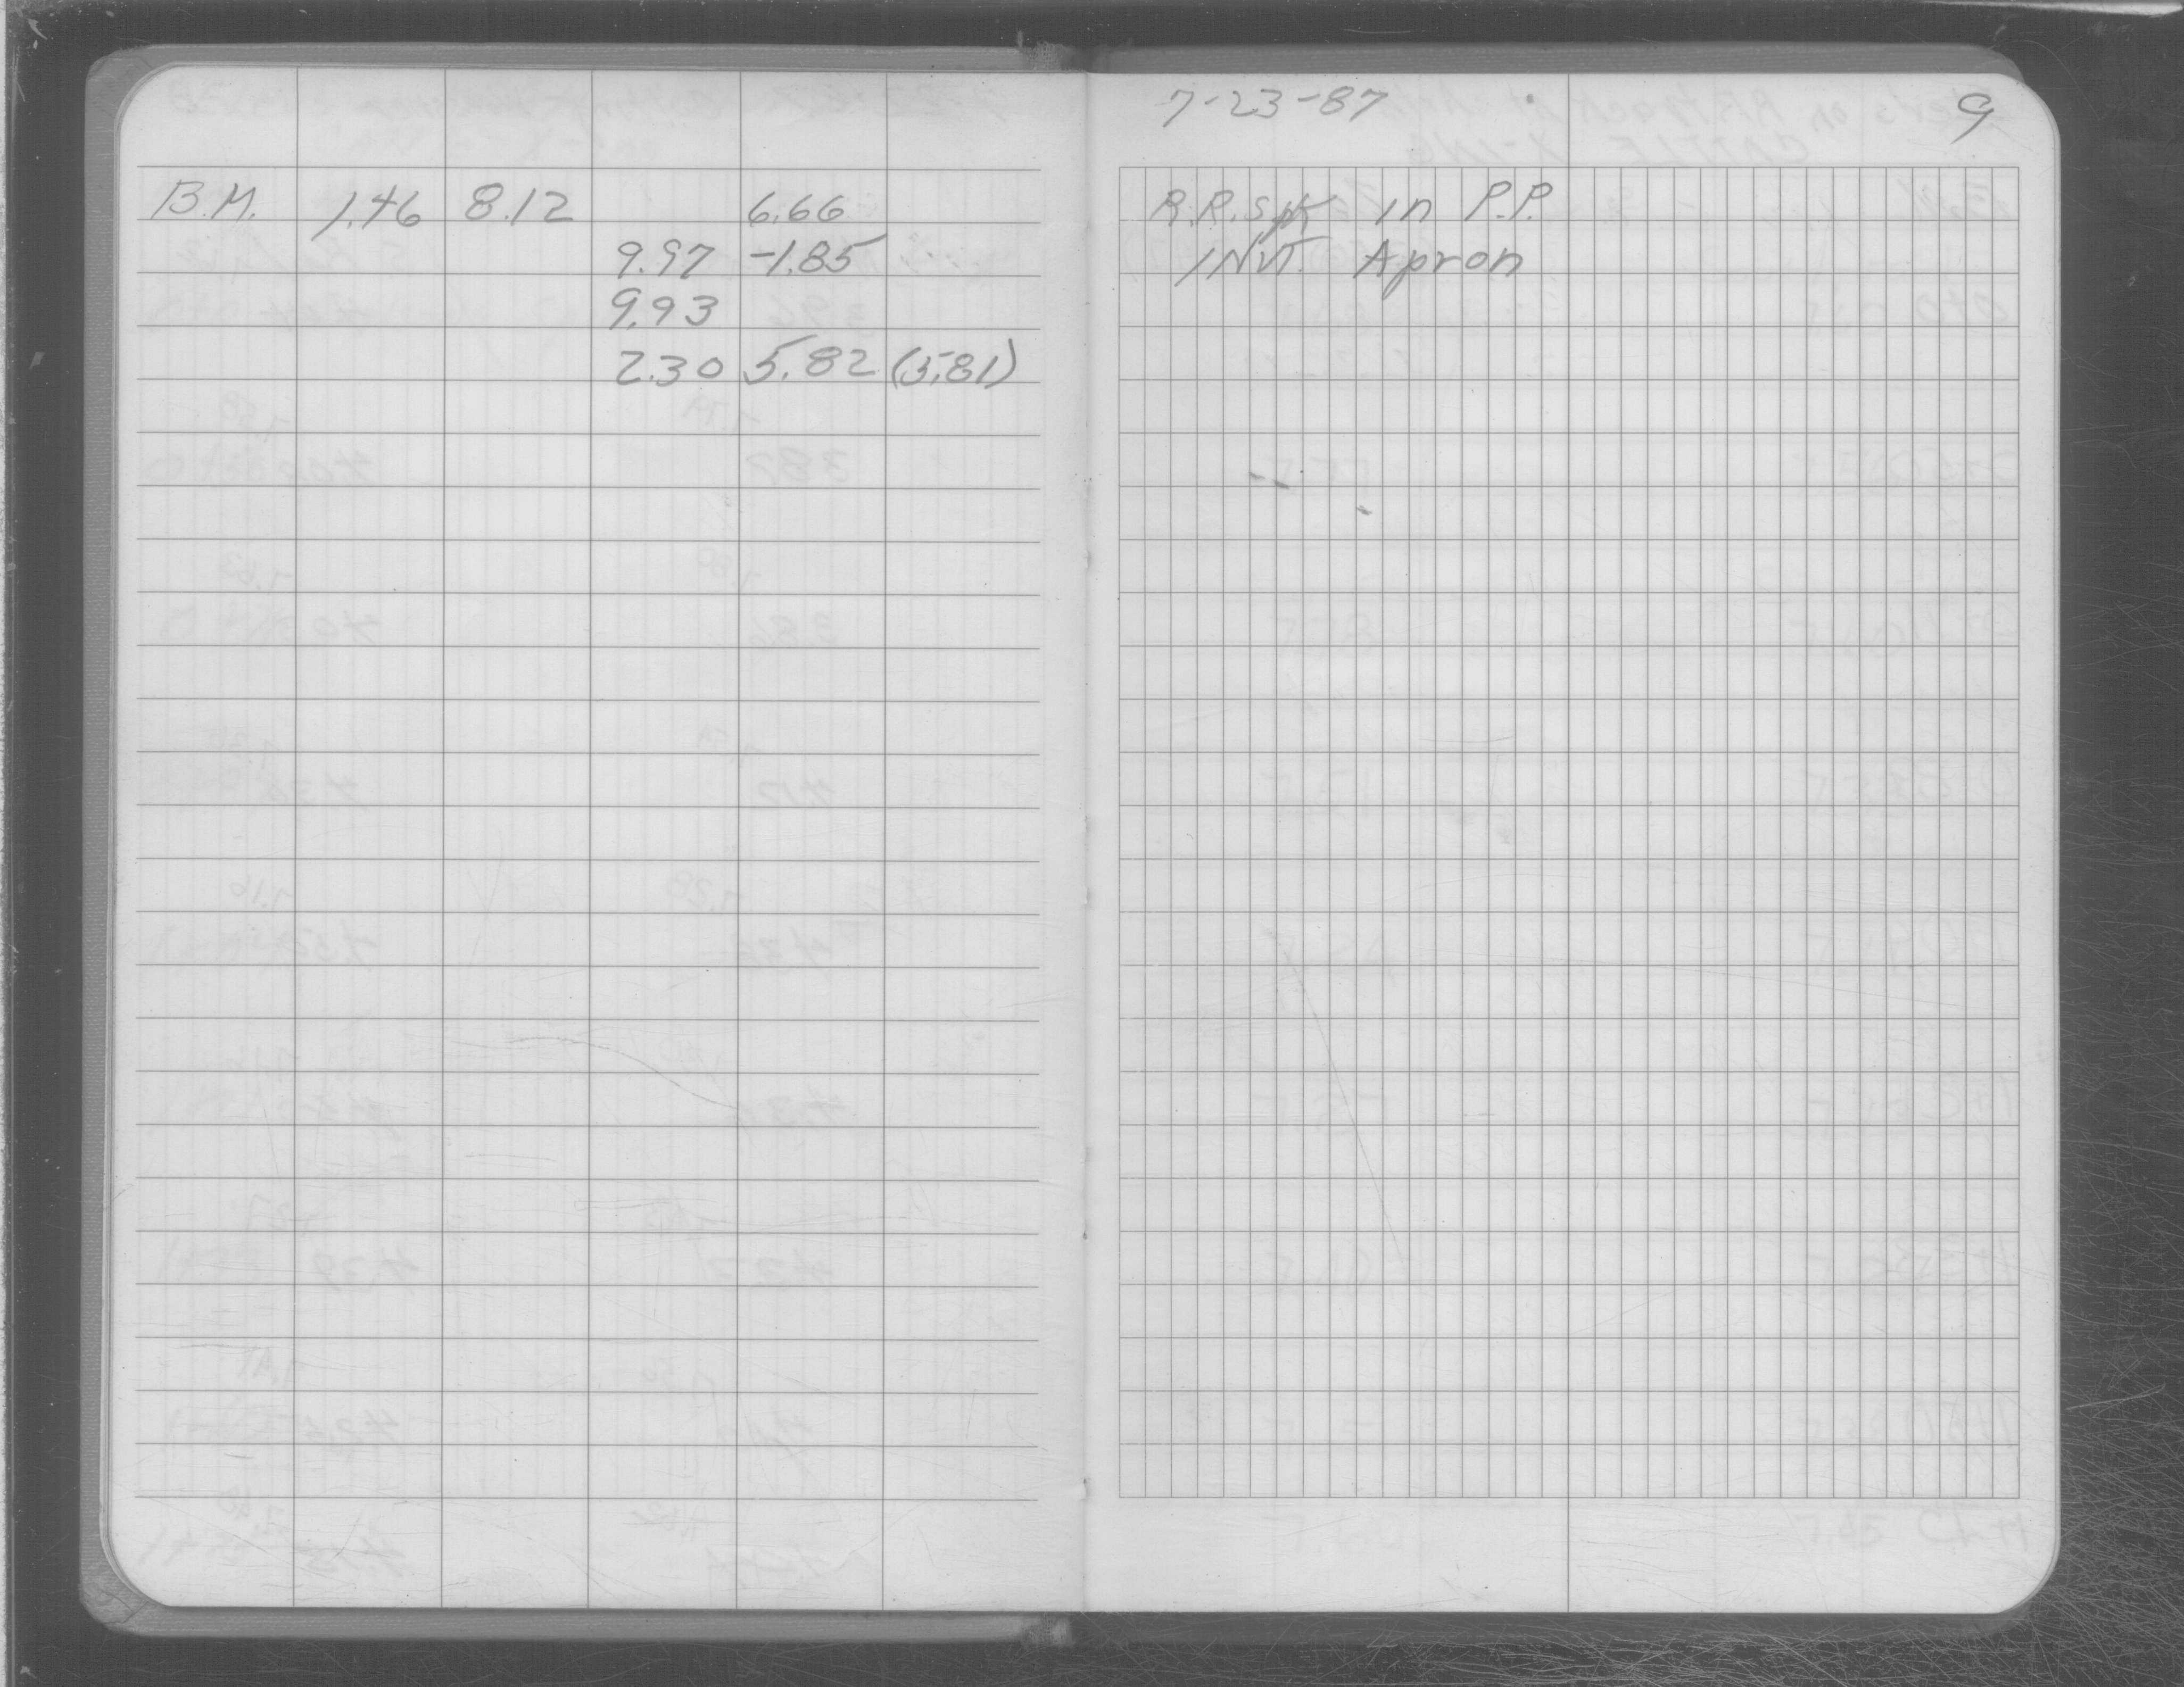 7-23-87 9
B.M. 1.46 8.12 6.66 R.R. Spk in P.P.
9.97 -1.85 INVT. Apron
9.93
2.30 5.82 (5.81)